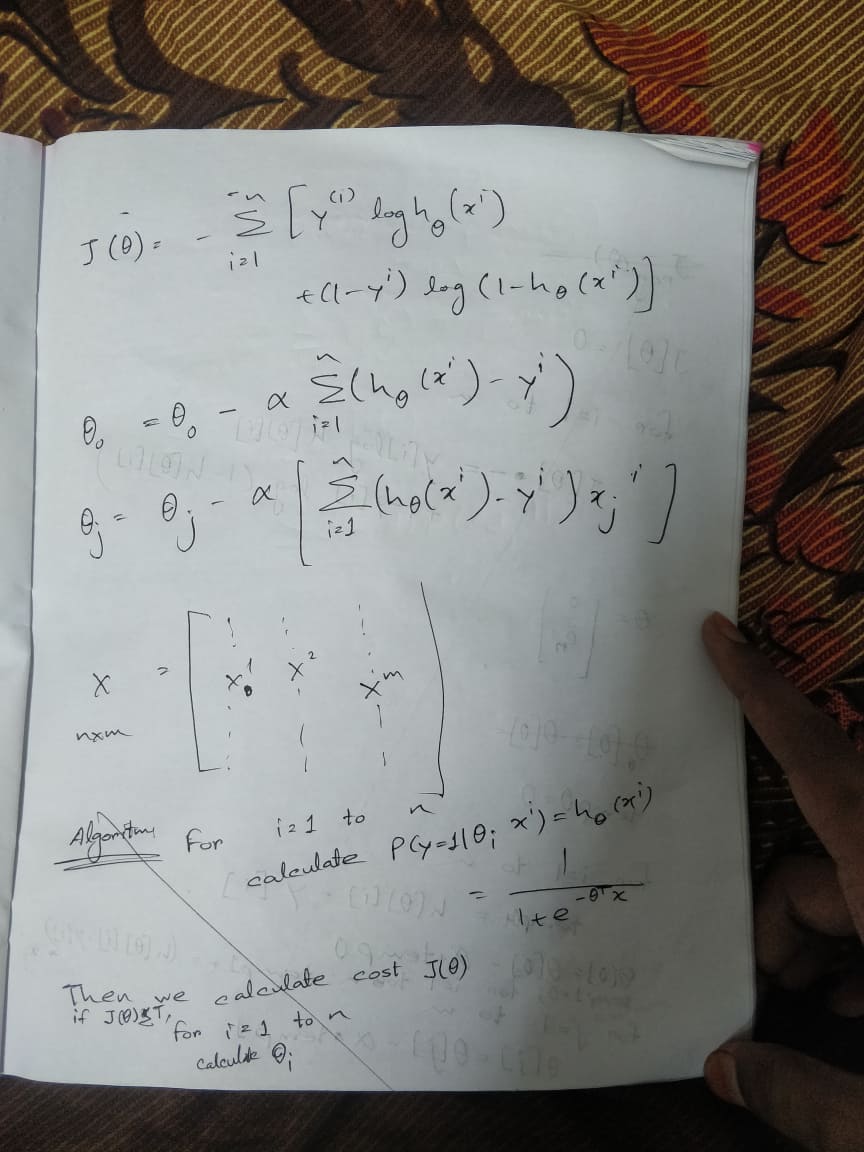 J(θ) = - Σ_{i=1}^{n} [ y^{(i)} log h_θ(x^i)
+ (1-y^i) log (1-h_θ(x^i)) ]
θ_0 = θ_0 - α Σ_{i=1}^{n} (h_θ(x^i) - y^i)
θ_j = θ_j - α [ Σ_{i=1}^{n} (h_θ(x^i) - y^i) x_j^i ]
X = [ x^1 x^2 x^m ]
n×m
Algorithm For i=1 to n
calculate P(y=1|θ; x^i) = h_θ(x^i)
= 1 / (1+e^{-θ^T x})
Then we calculate cost J(θ)
if J(θ)≤T,
for i=1 to n
calculate θ_i